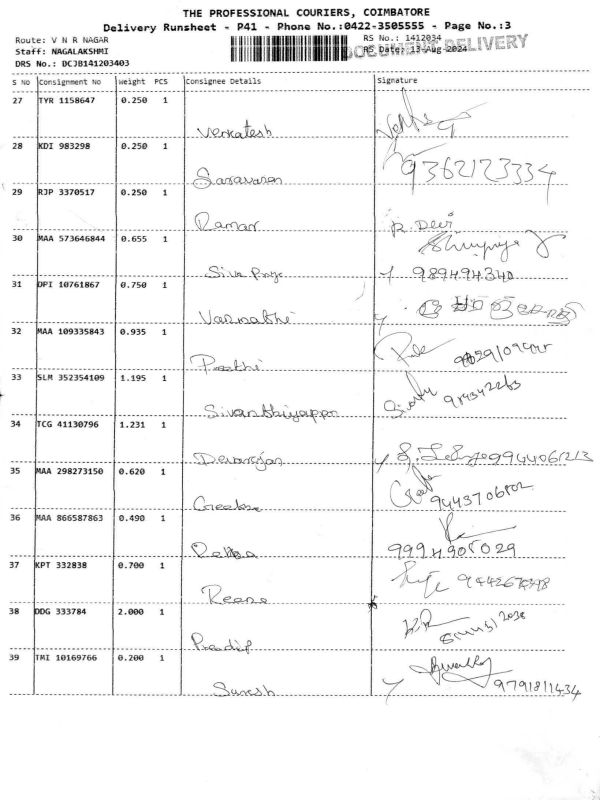 THE PROFESSIONAL COURIERS, COIMBATORE
Delivery Runsheet - P41 - Phone No.:0422-3505555 - Page No.:3
Route: V N R NAGAR
RS No.: 1412034
DOCUMENT DELIVERY
Staff: NAGALAKSHMI
RS Date: 13-Aug-2024
DRS No.: DCJB141203403
S No Consignment No Weight PCS Consignee Details Signature
27 TYR 1158647 0.250 1
Venkatesh
28 KDI 983298 0.250 1
9362123334
Saravanan
29 RJP 3370517 0.250 1
Raman R. Devi
30 MAA 573646844 0.655 1
Siva Priya 989494340
31 DPI 10761867 0.750 1
32 MAA 109335843 0.935 1
33 SLM 352354109 1.195 1
34 TCG 41130796 1.231 1
Devarajan 9944061213
35 MAA 298273150 0.620 1
Geetha
36 MAA 866587863 0.490 1
9994905029
37 KPT 332838 0.700 1
38 DDG 333784 2.000 1
Pradip
39 TMI 10169766 0.200 1
Suresh 9791811434